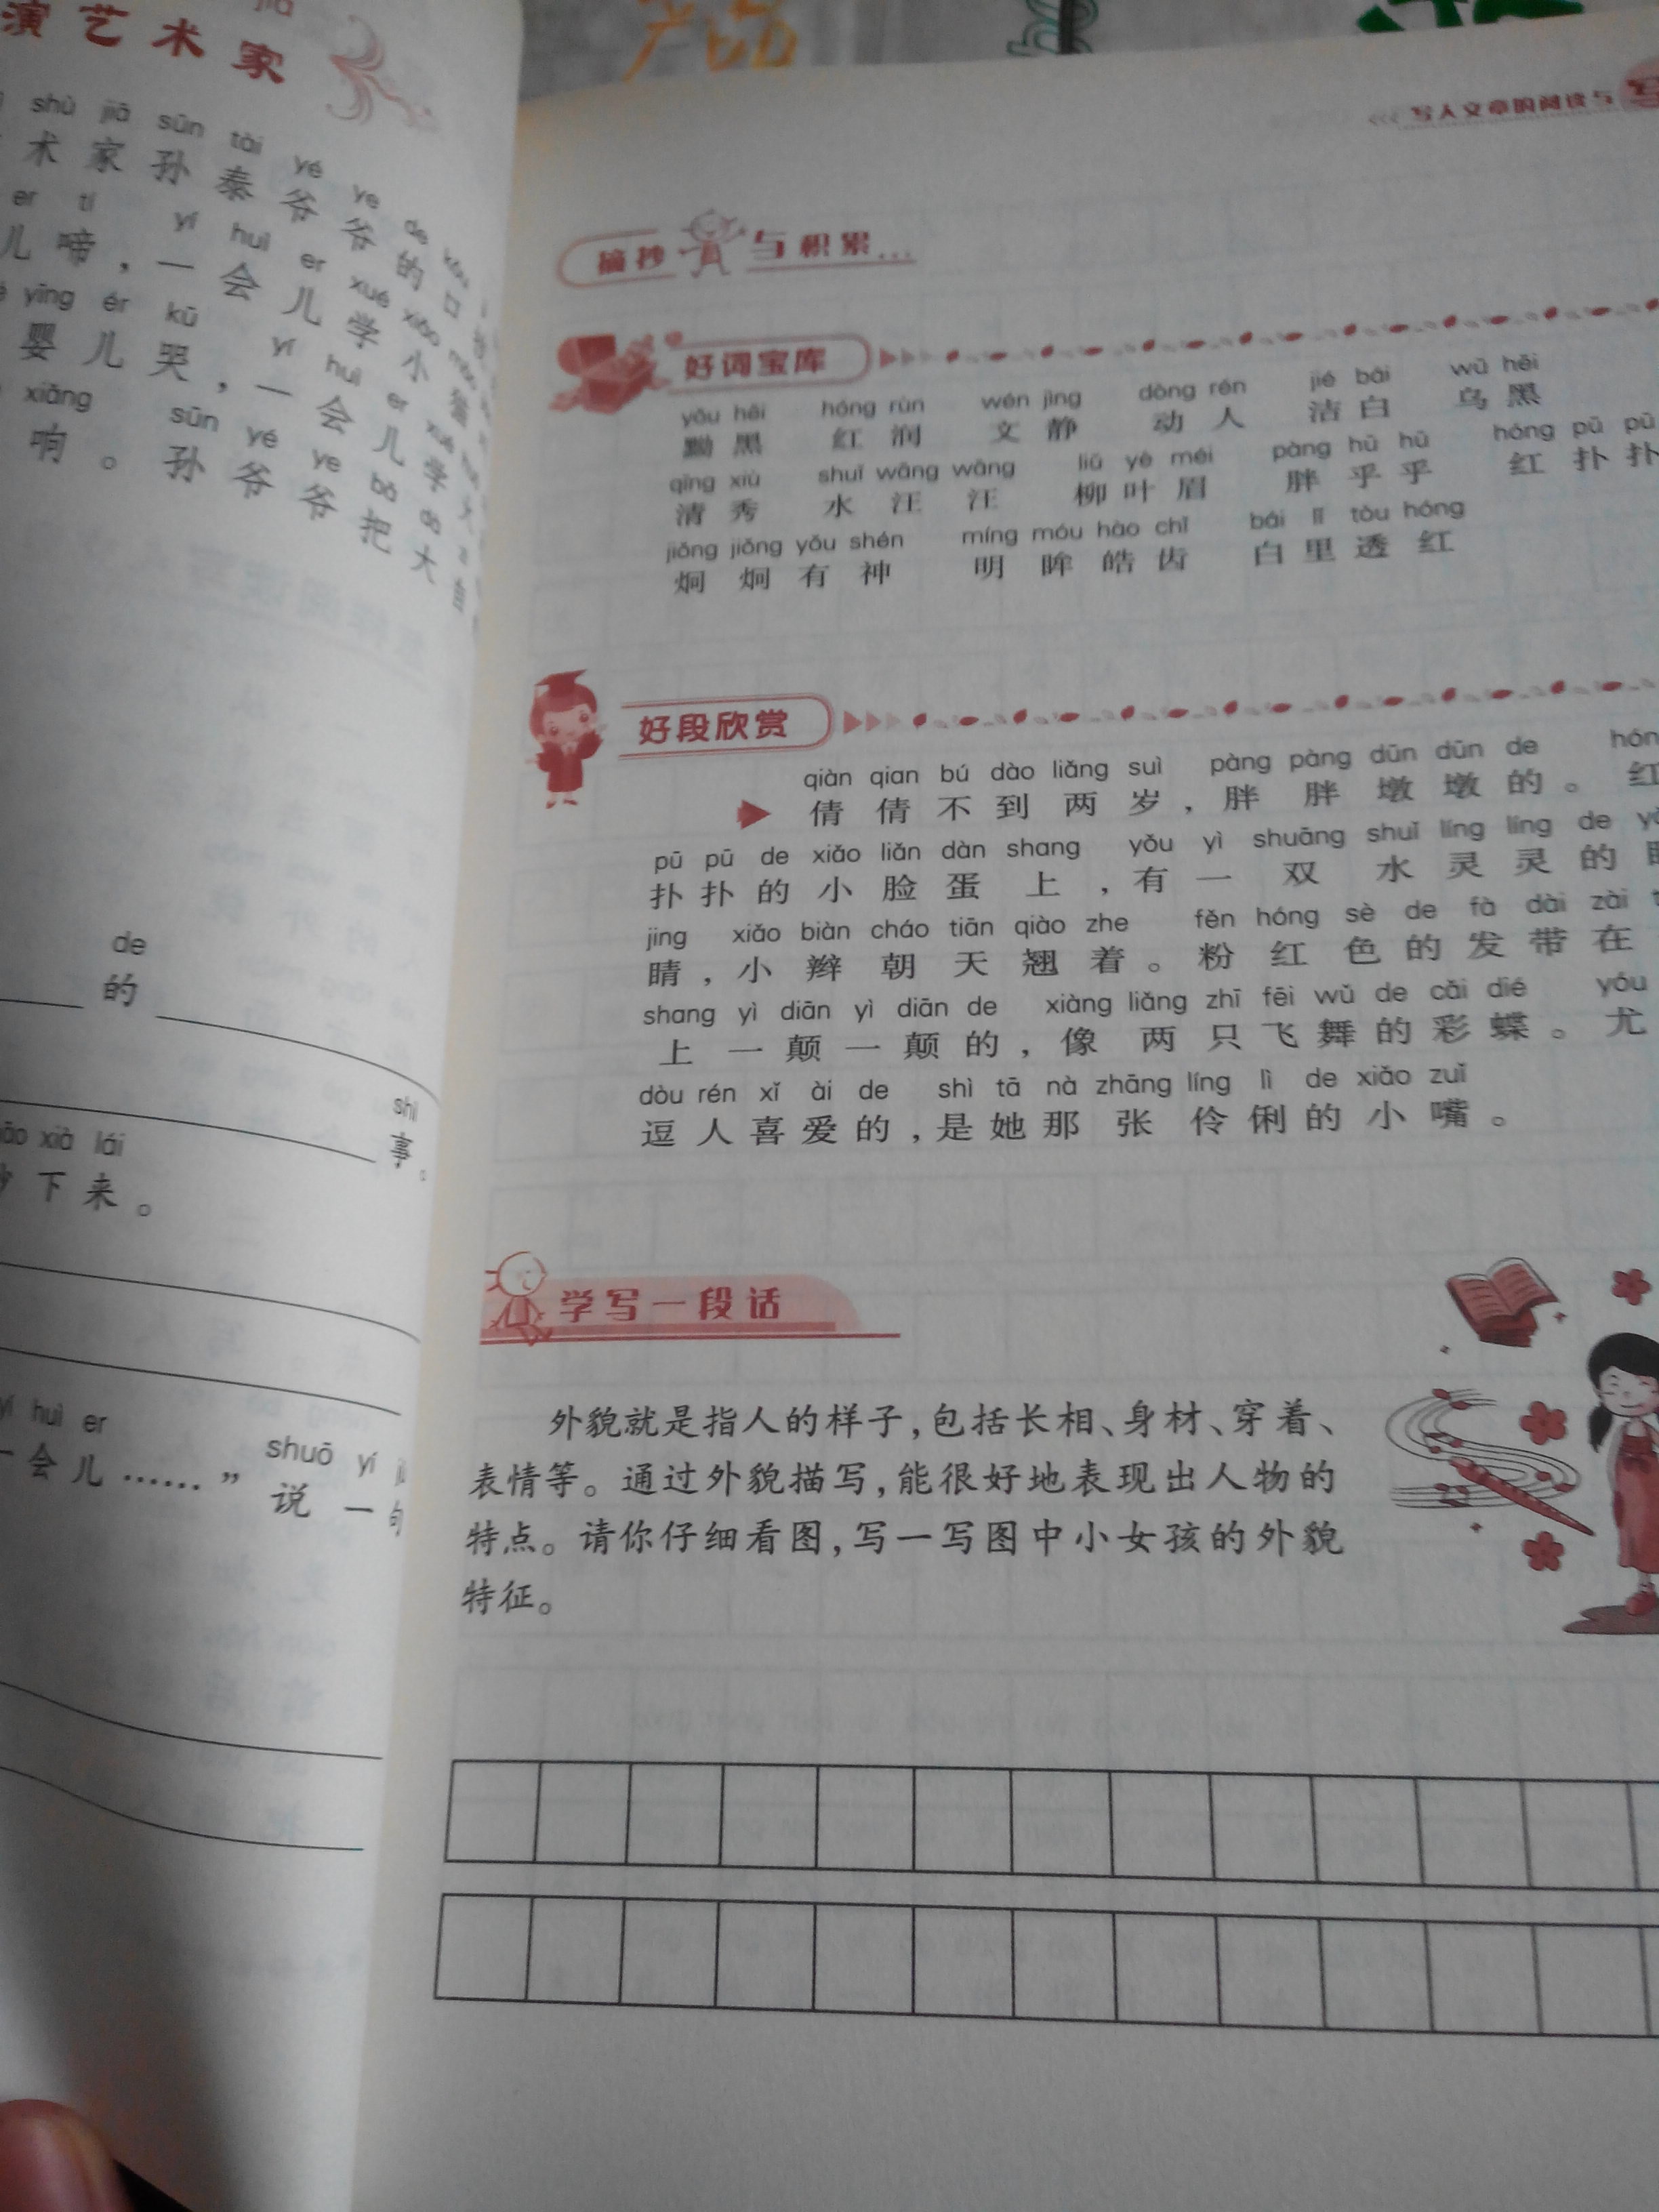 产品
演艺术家
shù jiā sūn tài yé ye de
术家孙泰爷爷的口
er tí yí huì er xué xiǎo
儿啼，一会儿学小
yīng ér kū yí huì er xué
婴儿哭，一会儿学
xiǎng sūn yé ye bǎ dà
响。孙爷爷把大
de
的
shì
事。
xià lái
下来。
yí huì er
一会儿……”
shuō yí
说一句
写人文章的阅读与写
摘抄与积累…
好词宝库
yǒu hēi hóng rùn wén jìng dòng rén jié bái wū hēi
黝黑 红润 文静 动人 洁白 乌黑
qīng xiù shuǐ wāng wāng liǔ yè méi pàng hū hū hóng pū pū
清秀 水汪汪 柳叶眉 胖乎乎 红扑扑
jiǒng jiǒng yǒu shén míng móu hào chǐ bái lǐ tòu hóng
炯炯有神 明眸皓齿 白里透红
好段欣赏
qiàn qian bú dào liǎng suì pàng pàng dūn dūn de
倩倩不到两岁，胖胖墩墩的。红
pū pū de xiǎo liǎn dàn shang yǒu yì shuāng shuǐ líng líng de
扑扑的小脸蛋上，有一双水灵灵的
jing xiǎo biàn cháo tiān qiào zhe fěn hóng sè de fà dài zài
睛，小辫朝天翘着。粉红色的发带在
shang yì diān yì diān de xiàng liǎng zhī fēi wǔ de cǎi dié yóu
上一颠一颠的，像两只飞舞的彩蝶。尤
dòu rén xǐ ài de shì tā nà zhāng líng lì de xiǎo zuǐ
逗人喜爱的，是她那张伶俐的小嘴。
学写一段话
外貌就是指人的样子，包括长相、身材、穿着、
表情等。通过外貌描写，能很好地表现出人物的
特点。请你仔细看图，写一写图中小女孩的外貌
特征。